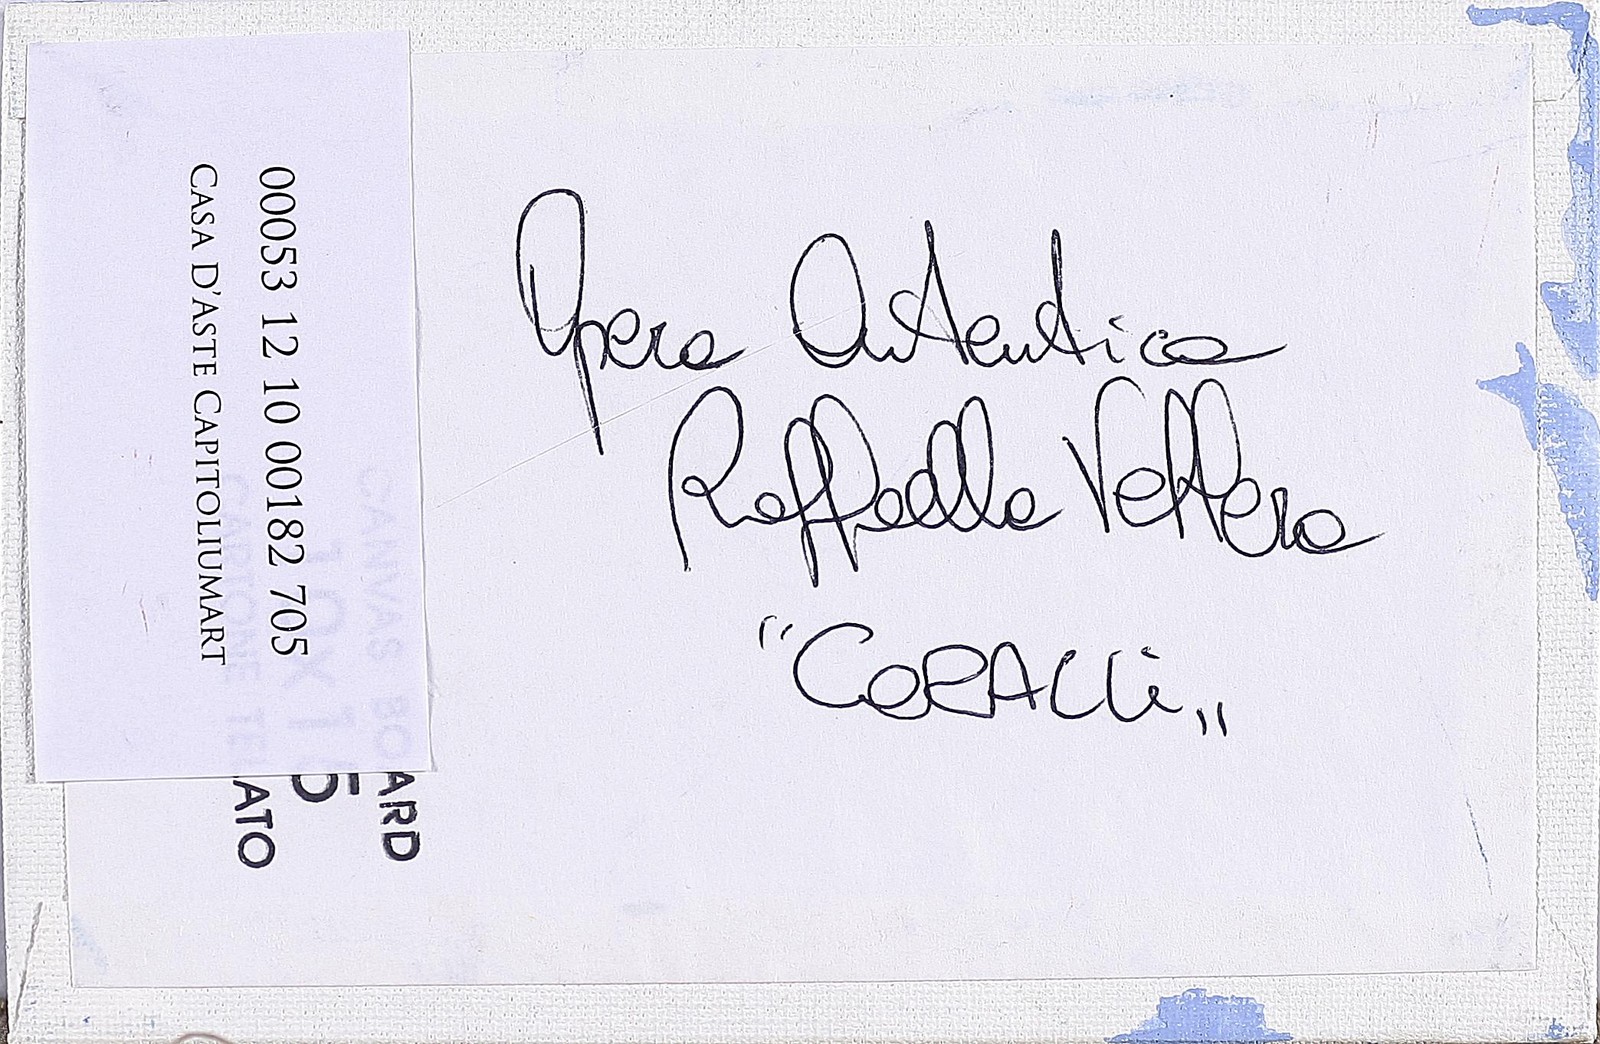 Opera Autentica
Raffaella Vettera
"CORALLi"
00053 12 10 00182 705
CASA D'ASTE CAPITOLIUMART
CANVAS BOARD
10X15
CARTONE TELATO